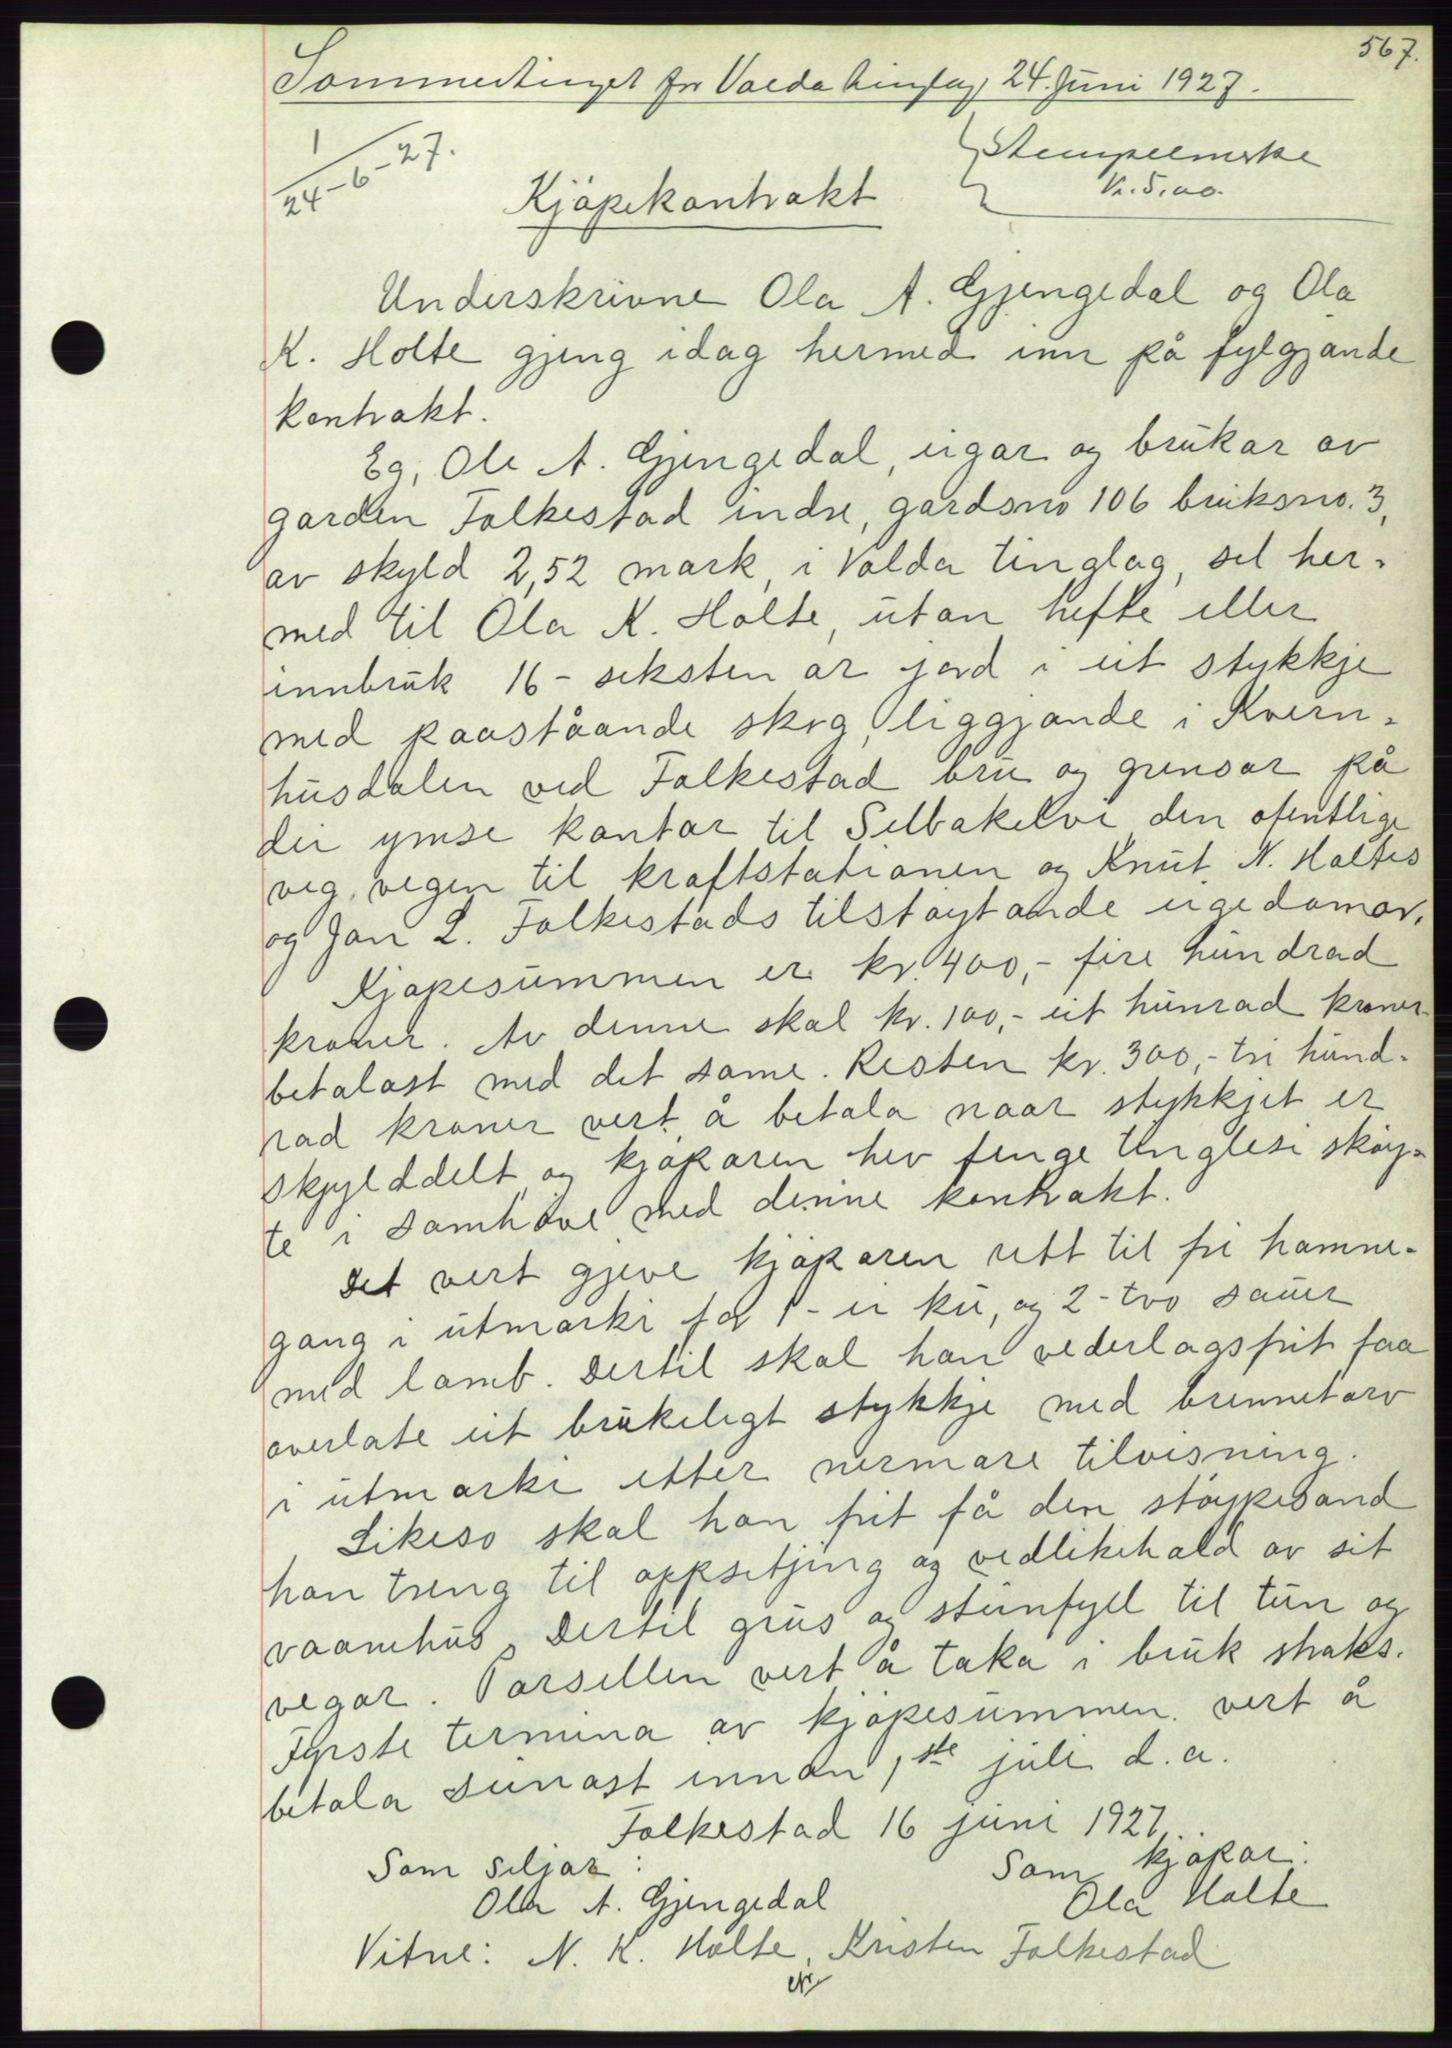 567.
Sommertinget for Volda tinglag 24. Juni 1927.
1
24-6-27.
Stempelmerke
Kr. 5.00.
Kjöpekontrakt
Underskrivne Ola A. Gjengedal og Ola
K. Holte gjeng idag hermed inn på fylgjande
kontrakt.
Eg, Ole A. Gjengedal, eigar og brukar av
garden Folkestad indre, gardsno 106 bruksno. 3,
av skyld 2,52 mark, i Volda tinglag, sel her-
med til Ola K. Holte, utan hefte eller
innbruk 16 - seksten ar jord i eit stykkje
med paaståande skog, liggjande i Kvern-
husdalen ved Folkestad bru og grensar på
dei ymse kantar til Selbakelvi, den ofentlige
veg, vegen til kraftstationen og Knut N. Holtes
og Jon L. Folkestads tilstøytande eigedomar.
Kjöpesummen er kr. 400,- fire hundrad
kroner. Av denne skal kr. 100,- eit hunrad kroner
betalast med det same. Resten kr. 300,- tri hund-
rad kroner vert å betala naar stykkjet er
skjylddelt og kjöparen hev fenge tinglesi sköy-
te i samhöve med denne kontrakt.
Det vert gjeve kjöparen rett til fri hamne-
gang i utmarki for 1 - ei ku, og 2 - tvo sauer
med lamb. Dertil skal han vederlagsfrit faa
overlate eit brukeligt stykkje med brennetorv
i utmarki etter nermare tilvisning.
Likeso skal han frit få den stöypesand
han treng til oppsetjing og vedlikehald av sit
vaanehus. Dertil grus og steinfyll til tun og
vegar. Parsellen vert å taka i bruk straks.
Fyrste termina av kjöpesummen vert å
betala seinast innan 1ste juli d.a.
Folkestad 16 juni 1927.
Som seljar: Som kjöpar:
Ola A. Gjengedal Ola Holte
Vitne: N. K. Holte, Kristen Folkestad